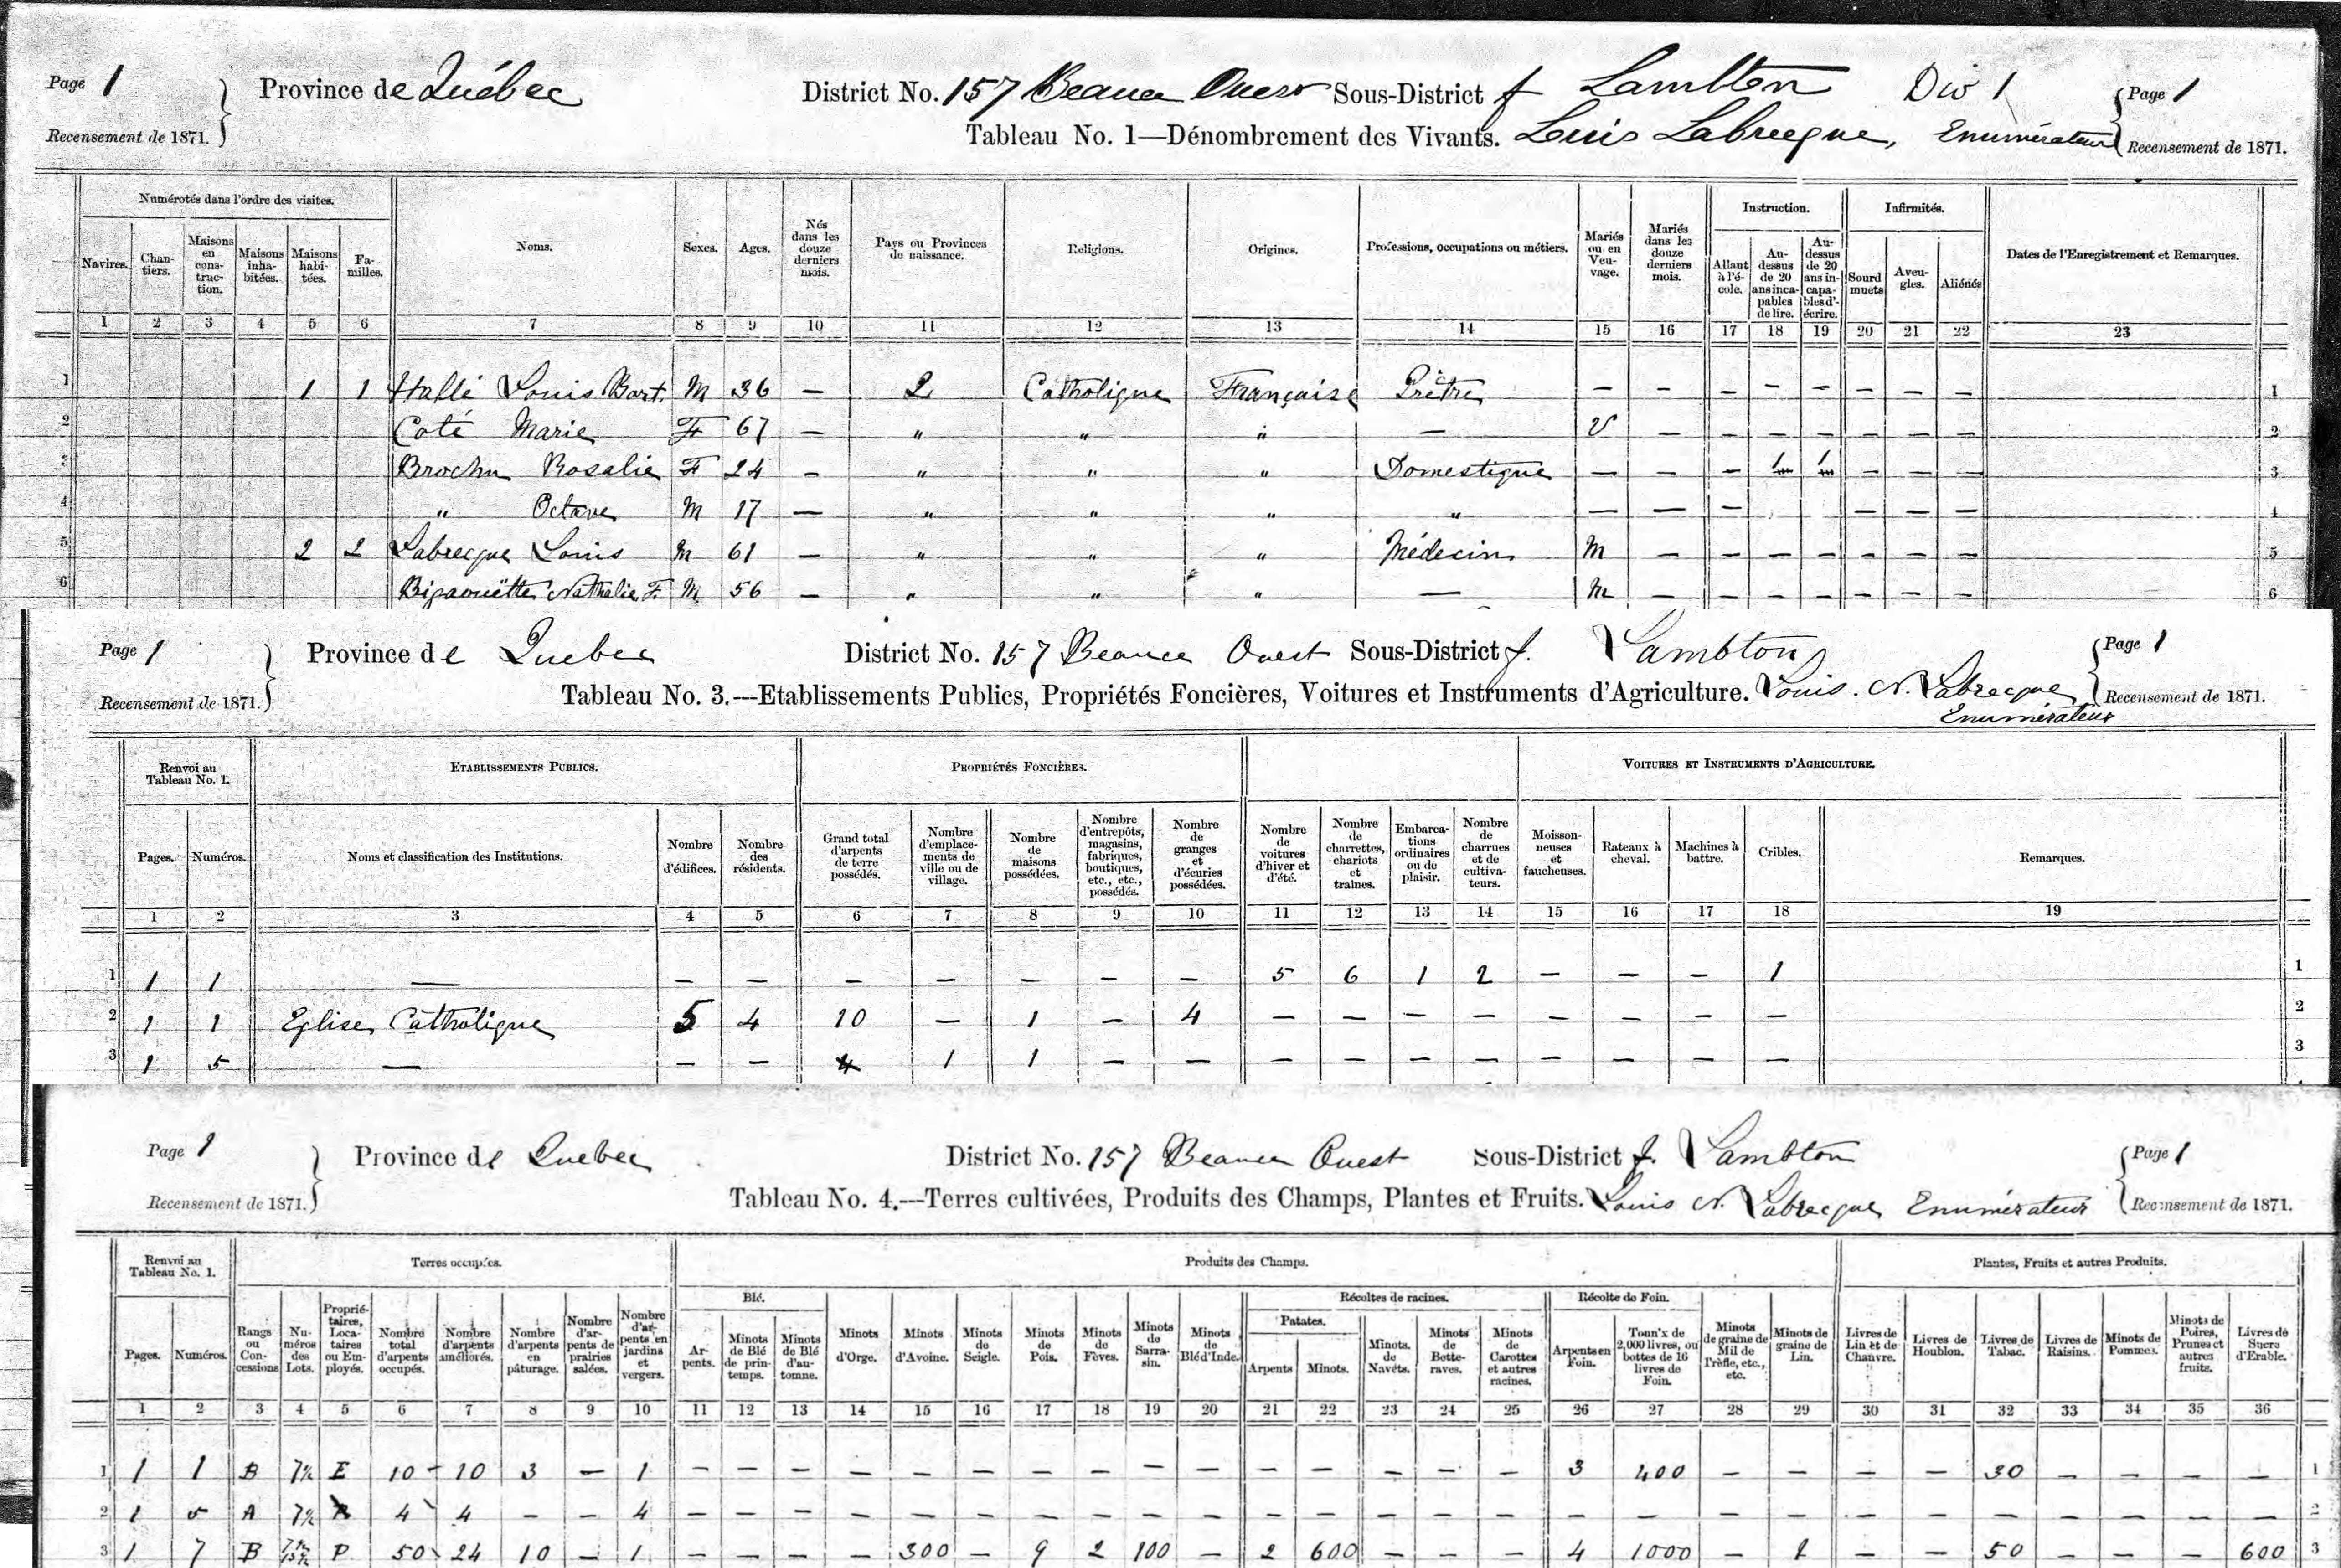 Page 1
Province de Québec
District No. 157 Beauce Ouest Sous-District f Lambton Div 1
Page 1
Recensement de 1871.
Tableau No. 1—Dénombrement des Vivants. Louis Labrecque, Enumérateur
Recensement de 1871.
Numérotés dans l'ordre des visites.
Instruction.
Infirmités.
Navires. Chantiers. Maisons en construction. Maisons inhabitées. Maisons habitées. Familles. Noms. Sexes. Ages. Nés dans les douze derniers mois. Pays ou Provinces de naissance. Religions. Origines. Professions, occupations ou métiers. Mariés ou en Veuvage. Mariés dans les douze derniers mois. Allant à l'école. Au-dessus de 20 ans incapables de lire. Au-dessus de 20 ans incapables d'écrire. Sourd muets Aveugles. Aliénés Dates de l'Enregistrement et Remarques.
1 2 3 4 5 6 7 8 9 10 11 12 13 14 15 16 17 18 19 20 21 22 23
1 1 1 Hallé Louis Bart. M 36 — 2 Catholique Française Prêtre — — — — — — — — 1
2 Coté Marie F 67 — " " " — V — — — — — — — 2
3 Brochu Rosalie F 24 — " " " Domestique — — — 1 1 — — — 3
4 " Octave M 17 — " " " " — — — — — — 4
5 2 2 Labrecque Louis M 61 — " " " Médecin M — — — — — — — 5
6 Bigaouëtte Nathalie F. M 56 — " " " — M — — — — — — — 6
Page 1
Province de Quebec
District No. 157 Beauce Ouest Sous-District f. Lambton
Page 1
Recensement de 1871.
Tableau No. 3.---Etablissements Publics, Propriétés Foncières, Voitures et Instruments d'Agriculture. Louis. N. Labrecque
Enumérateur
Recensement de 1871.
Renvoi au Tableau No. 1.
ETABLISSEMENTS PUBLICS.
PROPRIÉTÉS FONCIÈRES.
VOITURES ET INSTRUMENTS D'AGRICULTURE.
Pages. Numéros. Noms et classification des Institutions. Nombre d'édifices. Nombre des résidents. Grand total d'arpents de terre possédés. Nombre d'emplacements de ville ou de village. Nombre de maisons possédées. Nombre d'entrepôts, magasins, fabriques, boutiques, etc., etc., possédés. Nombre de granges et d'écuries possédées. Nombre de voitures d'hiver et d'été. Nombre de charrettes, chariots et traînes. Embarcations ordinaires ou de plaisir. Nombre de charrues et de cultivateurs. Moissonneuses et faucheuses. Rateaux à cheval. Machines à battre. Cribles. Remarques.
1 2 3 4 5 6 7 8 9 10 11 12 13 14 15 16 17 18 19
1 1 1 — — — — — — — — 5 6 1 2 — — — 1 1
2 1 1 Eglise Catholique 5 4 10 — 1 — 4 — — — — — — — — 2
3 1 5 — — — 4 1 1 — — — — — — — — — — 3
Page 1
Province de Quebec
District No. 157 Beauce Ouest Sous-District f. Lambton
Page 1
Recensement de 1871.
Tableau No. 4.---Terres cultivées, Produits des Champs, Plantes et Fruits. Louis N. Labrecque Enumérateur
Recensement de 1871.
Renvoi au Tableau No. 1.
Terres occupées.
Produits des Champs.
Plantes, Fruits et autres Produits.
Blé.
Récoltes de racines.
Récolte de Foin.
Patates.
Pages. Numéros. Rangs ou Concessions Numéros des Lots. Propriétaires, Locataires ou Employés. Nombre total d'arpents occupés. Nombre d'arpents améliorés. Nombre d'arpents en pâturage. Nombre d'arpents de prairies salées. Nombre d'arpents en jardins et vergers. Arpents. Minots de Blé de printemps. Minots de Blé d'automne. Minots d'Orge. Minots d'Avoine. Minots de Seigle. Minots de Pois. Minots de Fèves. Minots de Sarrasin. Minots de Bléd'Inde. Arpents Minots. Minots de Navets. Minots de Betteraves. Minots de Carottes et autres racines. Arpents en Foin. Tonn'x de 2,000 livres, ou bottes de 16 livres de Foin. Minots de graine de Mil de Trèfle, etc., etc. Minots de graine de Lin. Livres de Lin et de Chanvre. Livres de Houblon. Livres de Tabac. Livres de Raisins. Minots de Pommes. Minots de Poires, Prunes et autres fruits. Livres de Sucre d'Erable.
1 2 3 4 5 6 7 8 9 10 11 12 13 14 15 16 17 18 19 20 21 22 23 24 25 26 27 28 29 30 31 32 33 34 35 36
1 1 1 B 7½ E 10 10 3 — 1 — — — — — — — — — — — — — — — 3 400 — — — — 30 — — — — 1
2 1 5 A 7½ 4 4 — — 4 — — — — — — — — — — — — — — — — — — — — — — — — — — 2
3 1 7 B P 50 24 10 — 1 — — — — 300 — 9 2 100 — 2 600 — — — 4 1000 — 1 — — 50 — — — 600 3